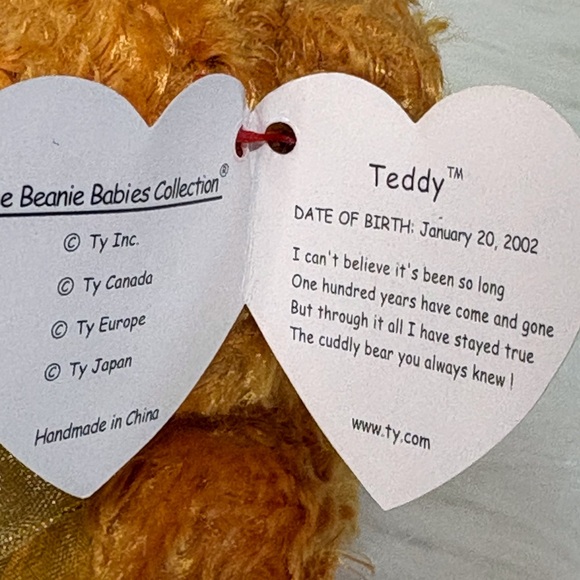 e Beanie Babies Collection®
© Ty Inc.
© Ty Canada
© Ty Europe
© Ty Japan
Handmade in China
Teddy™
DATE OF BIRTH: January 20, 2002
I can't believe it's been so long
One hundred years have come and gone
But through it all I have stayed true
The cuddly bear you always knew !
www.ty.com